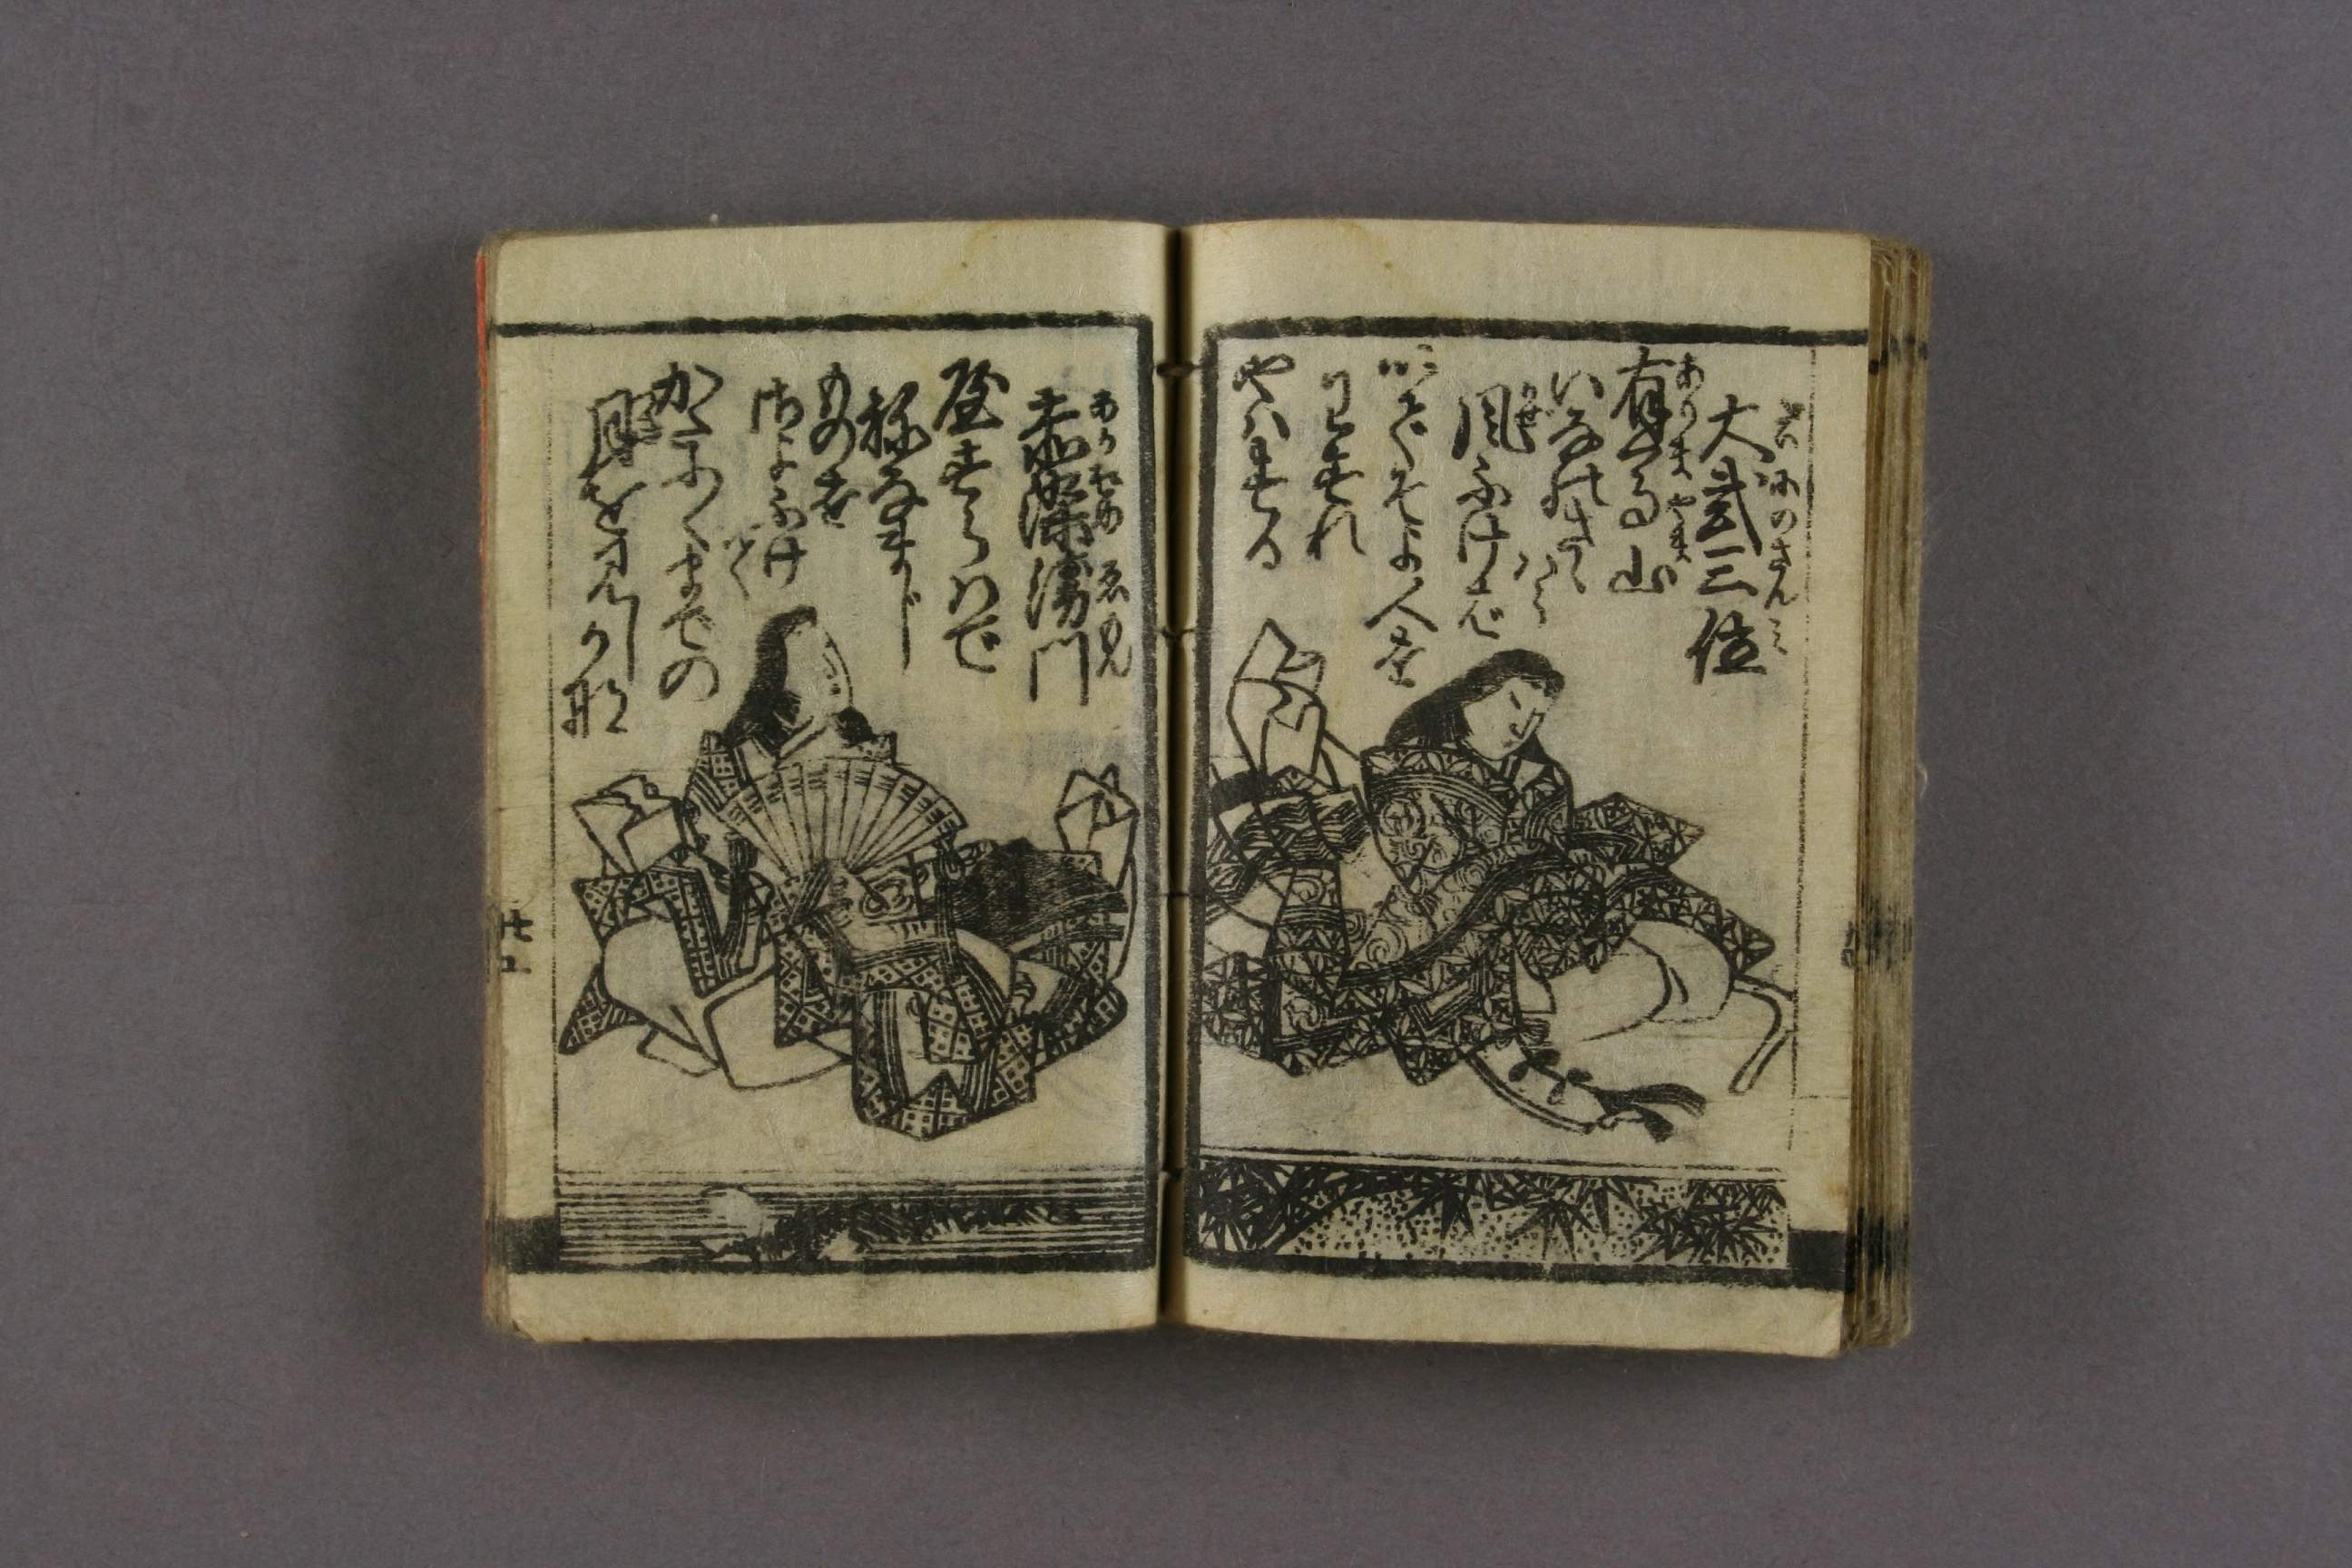 だいにのさんみ
大弐三位
ありまやま
有馬山
いなのさゝ
はら
かぜ
風ふけば
いでそよ人を
わすれ
やはする
あかぞめゑもん
赤染衛門
やすらはで
ねなまし
ものを
さよふけ
て
かたふくまでの
月を見しかな